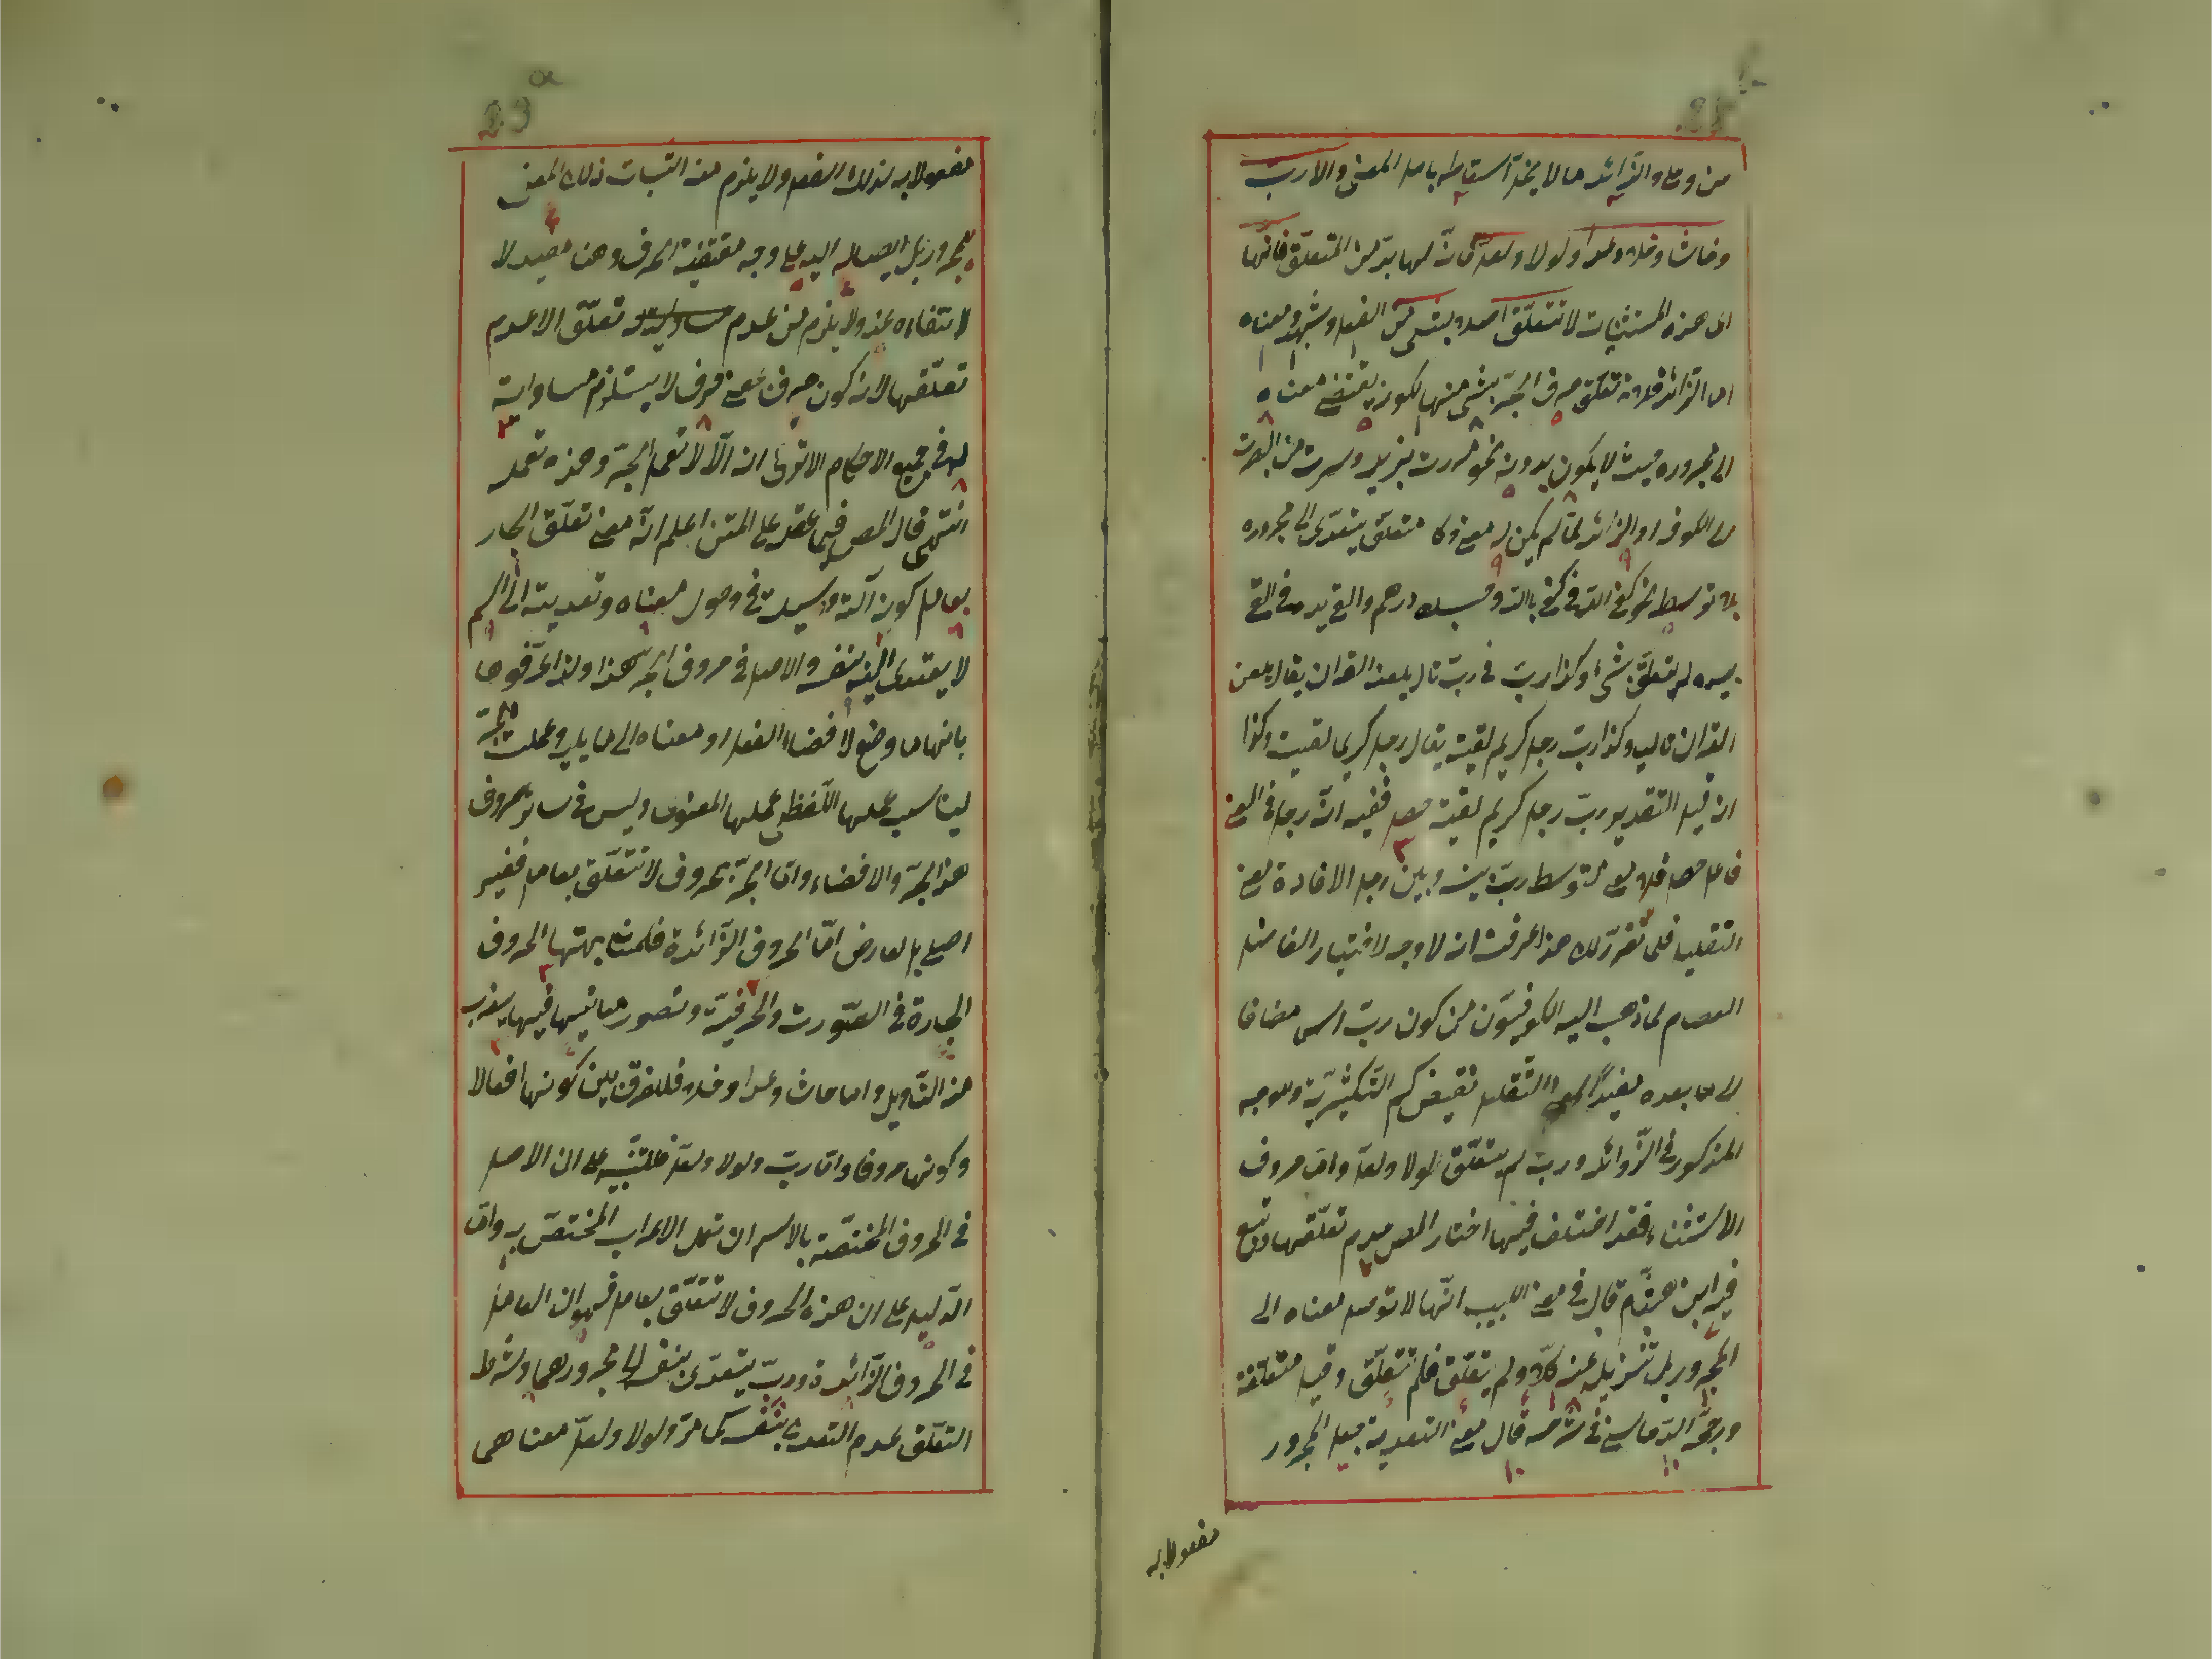 من وعلى والزائد ما لا يخلّ اسقاطه باصل المعنى والا ربّ
وحاشا وخلا وعدا ولولا ولعلّ فانّه لها بدّ من المتعلّق فانّها
اى هذه المستثنيات لا تتعلّق اصلا بشئ من الفعل وشبهه ومعناه
اما الزائد فلانه تعلق حرف الجرّ بشئ منها لكونه يقتضى معناه
الى مجروره حيث لا يكون بدونه نحو مررت بزيد وسرت من البصرة
الى الكوفة والزائد لمّا لم يكن له معنى وكان متعلّق يتعدّى الى مجروره
بلا توسط نحو كفى الله فى كفى بالله وحسبك درهم والقى يده فى القى
بيده لم يتعلّق بشئ وكذا ربّ فى ربّ تال يلعنه القرآن يقال يلعن
القرآن تاليه وكذا ربّ رجل كريم لقيته يقال رجلا كريما لقيت وكذا
ان قيل التقدير ربّ رجل كريم لقيته حصل ففيه انّ رجل فى المعنى
فاعل حصل فلا معنى لتوسط ربّ بينه وبين رجل الا افادة معنى
التقليل فلمّا تقرّر لك هذا عرفت ان لا وجه لاختيار الفاضل
العصام لما ذهب اليه الكوفيّون من كون ربّ اسما مضافا
الى ما بعده مفيدًا لمعنى التّقليل نقيض كم التّكثيريّة وللوجه
المذكور فى الزّوائد وربّ لم يتعلّق لولا ولعلّ واما حروف
الاستثناء فقد اختلف فيها اختار المص عدم تعلّقها وتبع
فيه ابن هشام قال فى مغنى اللبيب انّها لا توصل معناه الى
المجرور بل تزيله عنه كالّا ولم يتعلّق فلم تتعلّق وقيل متعلّقة
ورجّحه الدّمامينى فى شرحه قال معنى التعدية جعل المجرور
مفعولا به
مفعولا به لذلك الفعل ولا يلزم منه اثبات ذلك المعنى
للمجرور بل ايصاله اليه على وجه مقتضيه الحرف وهنا مفيد لا
لانتفائه عنه ولا يلزم من عدم تعلّق الا عدم
تعلّقها لانه كون حرف بمعنى حرف لا يستلزم مساواته
له فى جميع الاحكام الا ترى ان الّا لا تعمل الجرّ وهذه تعمله
انتهى قال المص فيما عقد على المتن اعلم انّ معنى تعلّق الجار
بعامل كونه آلة ووسيلة فى وصول معناه وتعديته الى اسم
لا يتعدى اليه بنفسه والاصل فى حروف الجر هذا ولذا عرّفوها
بانها ما وضع لافضاء الفعل او معناه الى ما يليه وعملت الجرّ
ليناسب عملها اللّفظى عملها المعنوى وليس فى سائر الحروف
هذا الجرّ والافضاء واما الجرّ بحروف لا تتعلّق بعامل فغير
اصلى بل لعارض امّا الحروف الزّائدة فلمشابهتها الحروف
الجارة فى الصّورة والحرفيّة وتصور معانيها فيها بضرب
من التّأويل واما حاشا وعدا وخلا فللفرق بين كونها افعالا
وكونها حروفا واما ربّ ولولا ولعلّ فللتنبيه على ان الاصل
فى الحروف المختصّة بالاسم ان تعمل الاعراب المختصّ به واما
الدّليل على ان هذه الحروف لا تتعلّق بعامل فهو ان العامل
فى الحروف الزّائدة وربّ يتعدّى بنفسه الى مجرورهما وشرط
التعلّق عدم التعدى بنفسه كما مرّ ولولا ولعلّ معناهما